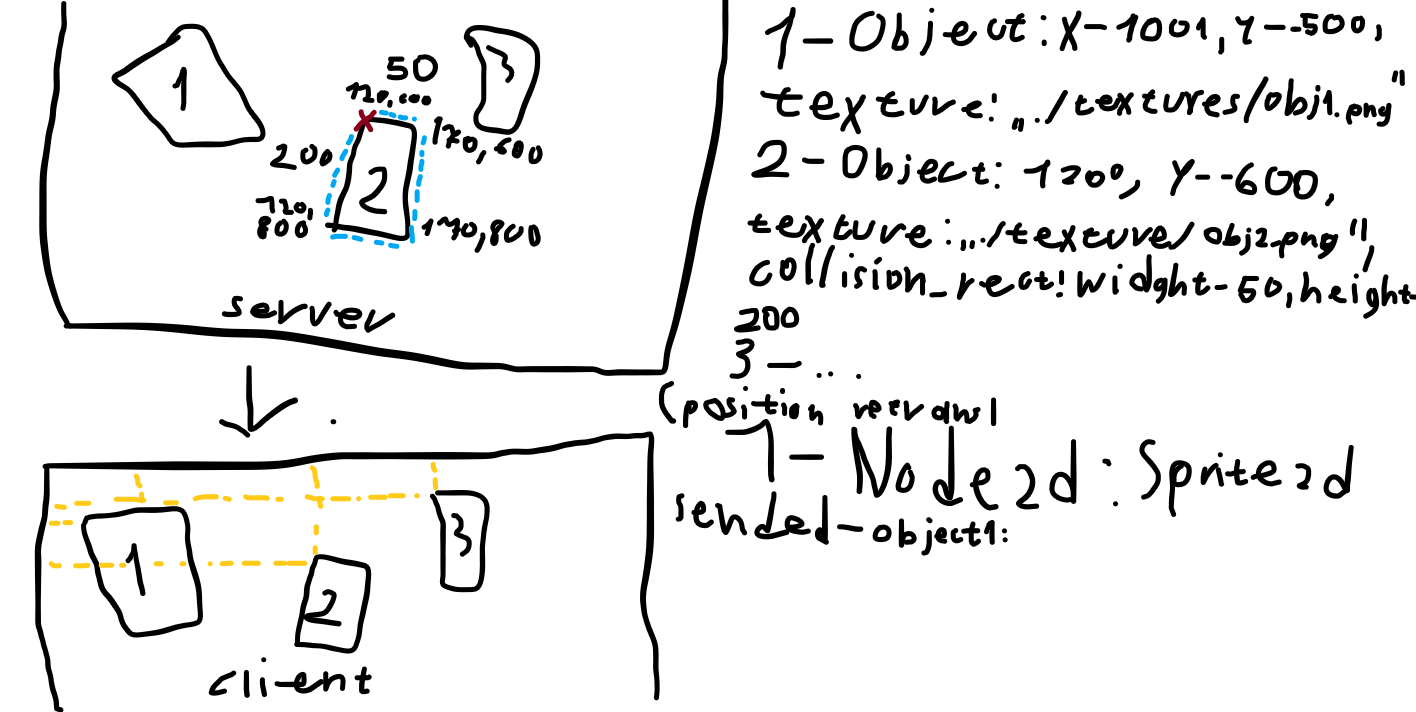 1
50
3
200
170,600
2
800
170,800
server
1 - Object: X-1001, Y--500,
texture: „./textures/obj1.png"
2 - Object: 1200, Y--600,
texture: „./texture/obj2.png",
collision_rect: widght-50, height-
200
3 - ...
(position
1 - Node2d: Sprite2d
sended-object1:
1
2
3
client